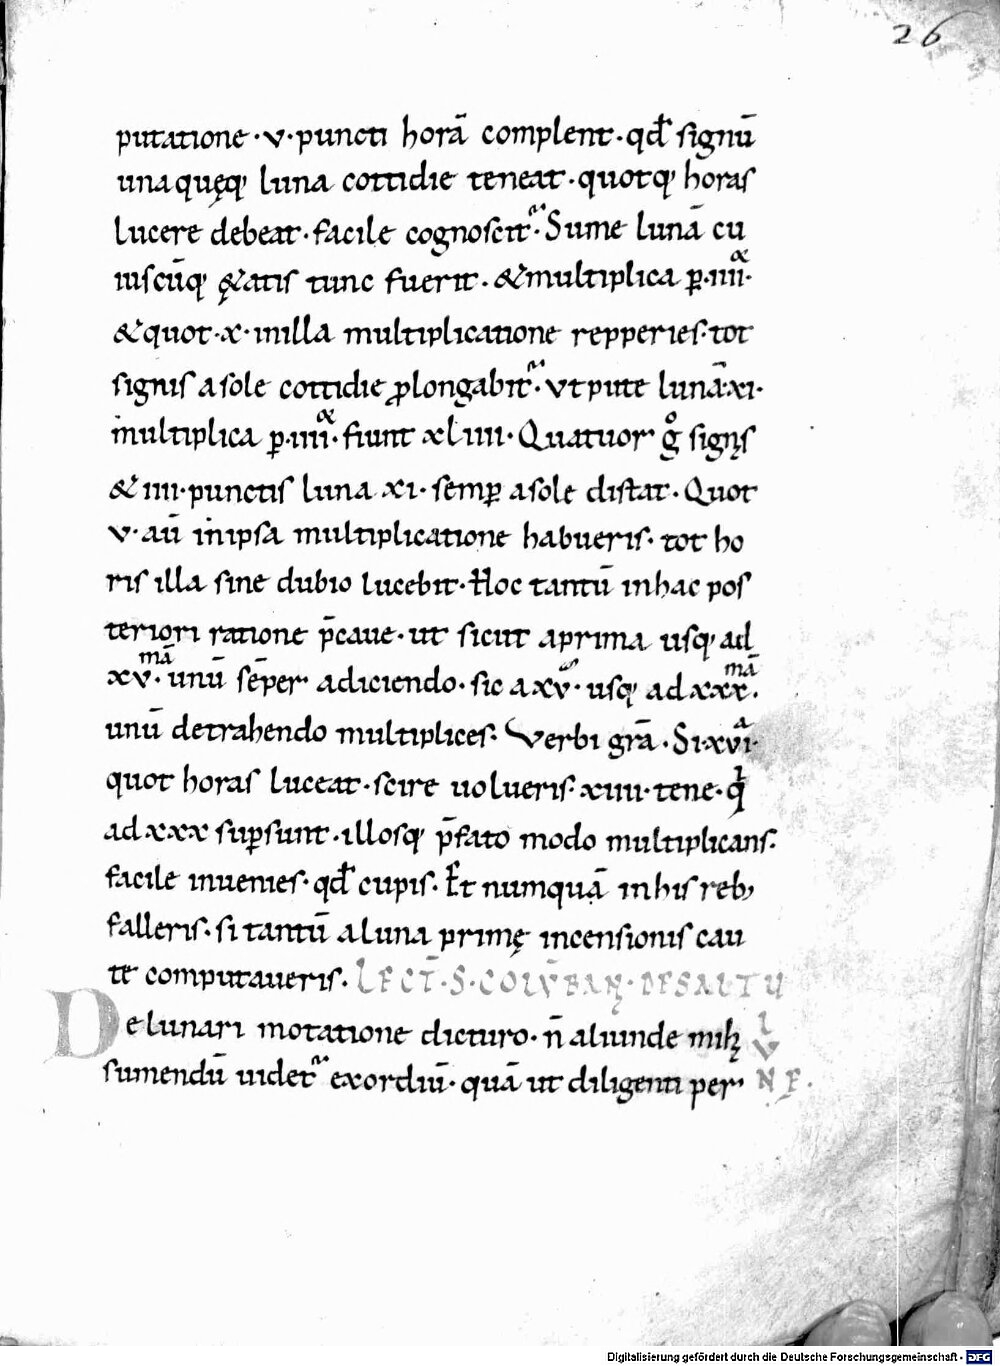 26
putatione·v·puncti horā complent·qđ signū
unaquęq; luna cottidie teneat·quotq; horas
lucere debeat·facile cognoscit᷒·Sume lunā cu
iuscūq; ętatis tunc fuerit·&multiplica ꝑ·iiii·
&quot·x·inilla multiplicatione repperies·tot
signis asole cottidie ꝓlongabit᷒·Vtpute lunā·xi·
multiplica ꝑ·iiii·fiunt xliiii·Quatuor g̊ signis
&iiii·punctis luna xi·semꝑ asole distat·Quot
v·aū inipsa multiplicatione habueris·tot ho
ris illa sine dubio lucebit·Hoc tantū inhac pos
teriori ratione p̄caue·ut sicut aprima usq; ad
xv·mā unū sēper adiciendo·sic axv·usq; adxxx·mā
unū detrahendo multiplices·Verbi grā·Si·xvi·a
quot horas luceat·scire uolueris·xiiii·tene·q
adxxx suꝑsunt·illosq; p̄fato modo multiplicans·
facile inuenies·qđ cupis·Et numquā inhis reb;
falleris·si tantū aluna primę incensionis cau
te computaueris·LECT̄·S·COLŪBANI·DESALTU
LVNĘ·
De lunari motatione dicturo·n̄ aliunde mihi
sumendū uidet᷒ exordiū·quā ut diligenti per
Digitalisierung gefördert durch die Deutsche Forschungsgemeinschaft - DFG